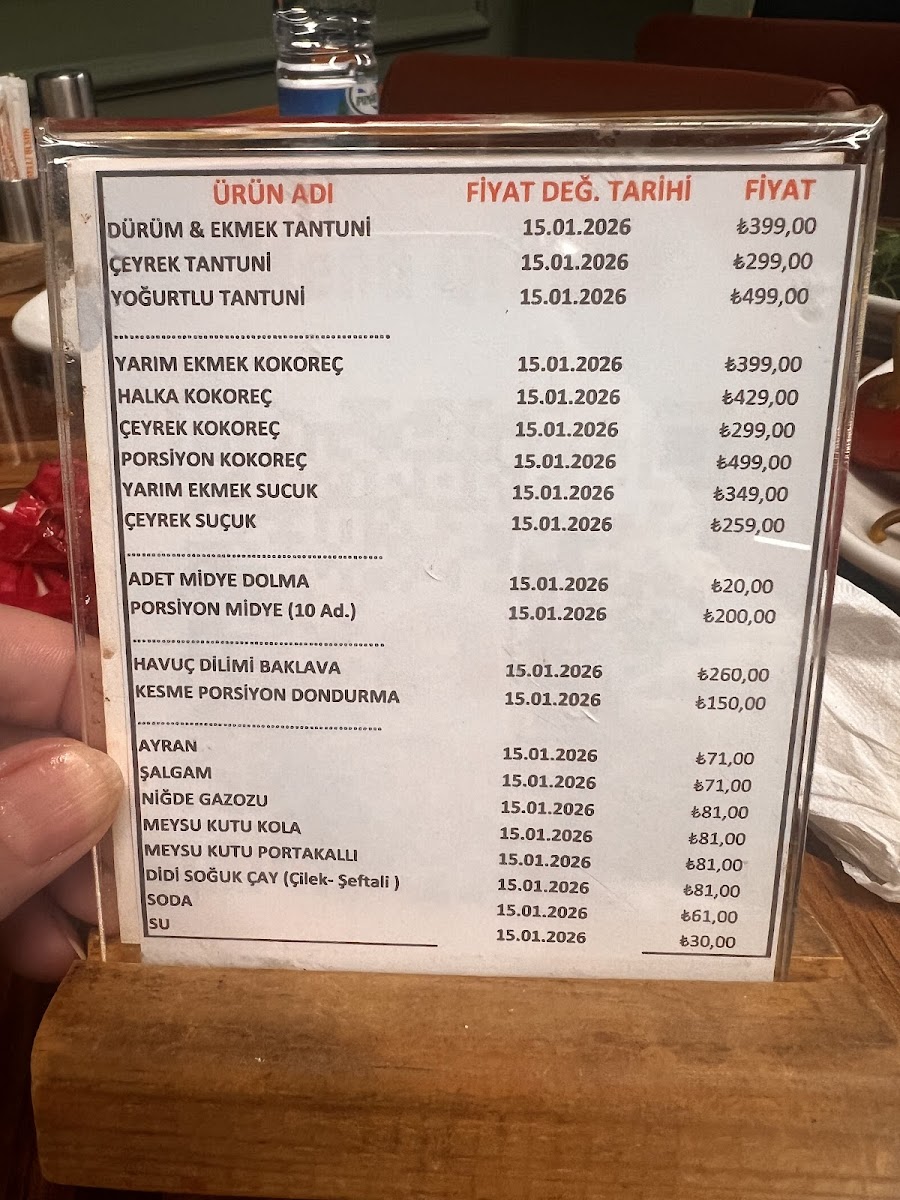 ÜRÜN ADI FİYAT DEĞ. TARİHİ FİYAT
DÜRÜM & EKMEK TANTUNİ 15.01.2026 ₺399,00
ÇEYREK TANTUNİ 15.01.2026 ₺299,00
YOĞURTLU TANTUNİ 15.01.2026 ₺499,00
YARIM EKMEK KOKOREÇ 15.01.2026 ₺399,00
HALKA KOKOREÇ 15.01.2026 ₺429,00
ÇEYREK KOKOREÇ 15.01.2026 ₺299,00
PORSİYON KOKOREÇ 15.01.2026 ₺499,00
YARIM EKMEK SUCUK 15.01.2026 ₺349,00
ÇEYREK SUÇUK 15.01.2026 ₺259,00
ADET MİDYE DOLMA 15.01.2026 ₺20,00
PORSİYON MİDYE (10 Ad.) 15.01.2026 ₺200,00
HAVUÇ DİLİMİ BAKLAVA 15.01.2026 ₺260,00
KESME PORSİYON DONDURMA 15.01.2026 ₺150,00
AYRAN 15.01.2026 ₺71,00
ŞALGAM 15.01.2026 ₺71,00
NİĞDE GAZOZU 15.01.2026 ₺81,00
MEYSU KUTU KOLA 15.01.2026 ₺81,00
MEYSU KUTU PORTAKALLI 15.01.2026 ₺81,00
DİDİ SOĞUK ÇAY (Çilek- Şeftali ) 15.01.2026 ₺81,00
SODA 15.01.2026 ₺61,00
SU 15.01.2026 ₺30,00